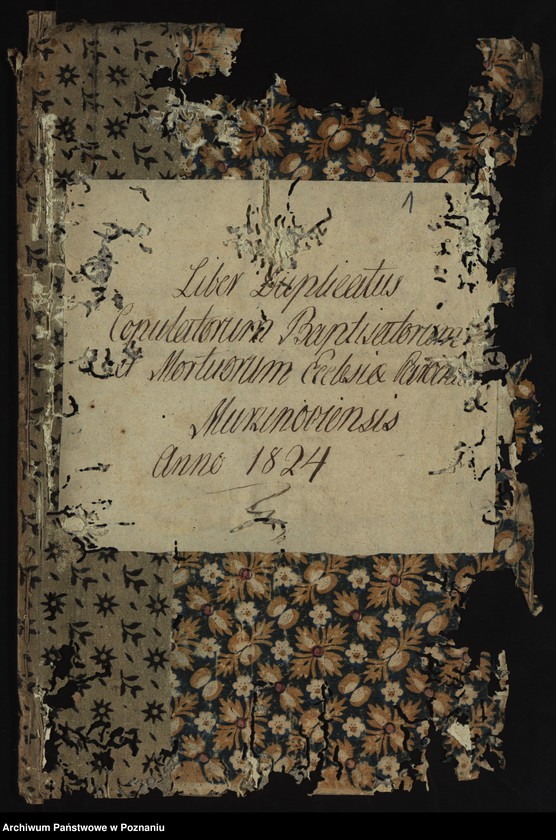 1
Liber Duplicatus
Copulatorum Baptisatorum
et Mortuorum Ecclesiæ
Murzinoviensis
Anno 1824
Archiwum Państwowe w Poznaniu